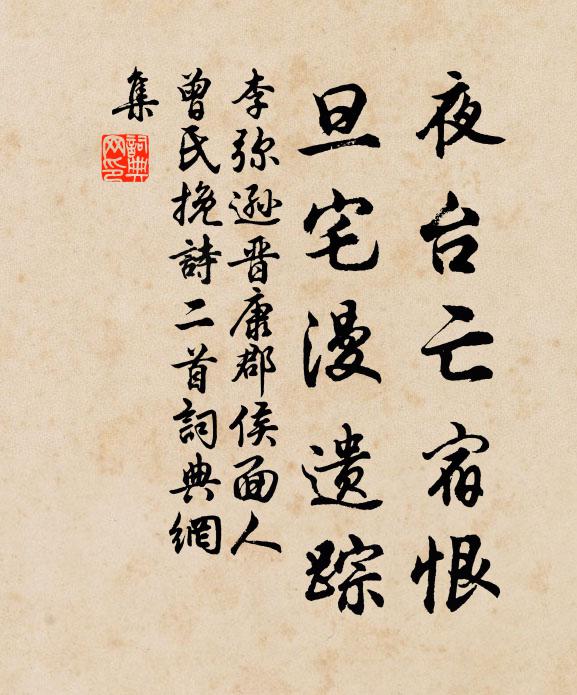 夜台亡宿恨
旦宅漫遗踪
李弥遜晋康郡侯面人
曾氏挽詩二首詞典網
集
詞典网印